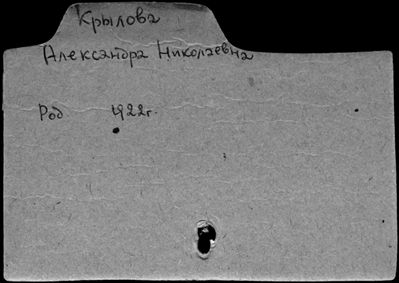 Крылова
Александра Николаевна
Род 1922г.